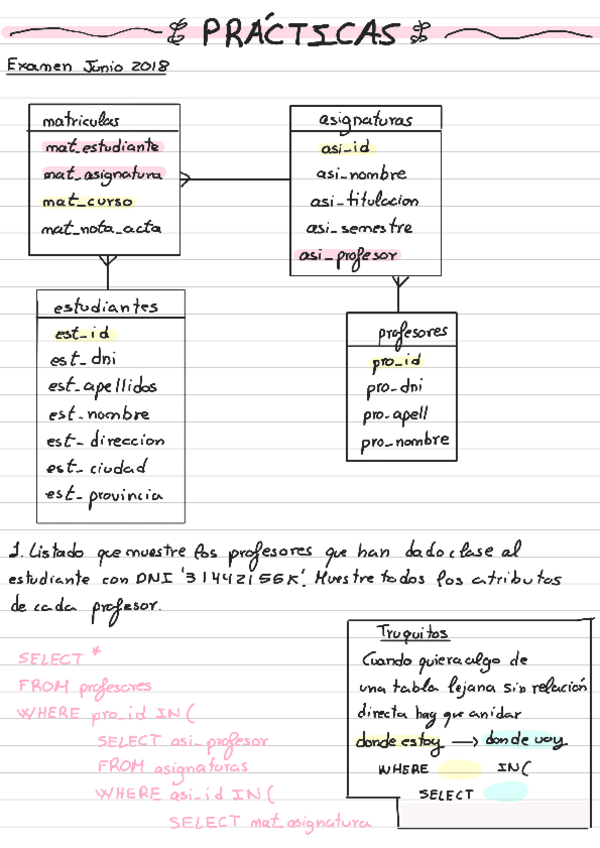 PRÁCTICAS
Examen Junio 2018
matriculas
mat_estudiante
mat_asignatura
mat_curso
mat_nota_acta
asignaturas
asi_id
asi_nombre
asi_titulacion
asi_semestre
asi_profesor
estudiantes
est_id
est_dni
est_apellidos
est_nombre
est_direccion
est_ciudad
est_provincia
profesores
pro_id
pro_dni
pro_apell
pro_nombre
1. Listado que muestre los profesores que han dado clase al
estudiante con DNI '31442156K'. Muestre todos los atributos
de cada profesor.
SELECT *
FROM profesores
WHERE pro_id IN (
SELECT asi_profesor
FROM asignaturas
WHERE asi_id IN (
SELECT mat_asignatura
Truquitos
Cuando quiera algo de
una tabla lejana sin relación
directa hay que anidar
donde estoy → donde voy
WHERE IN (
SELECT